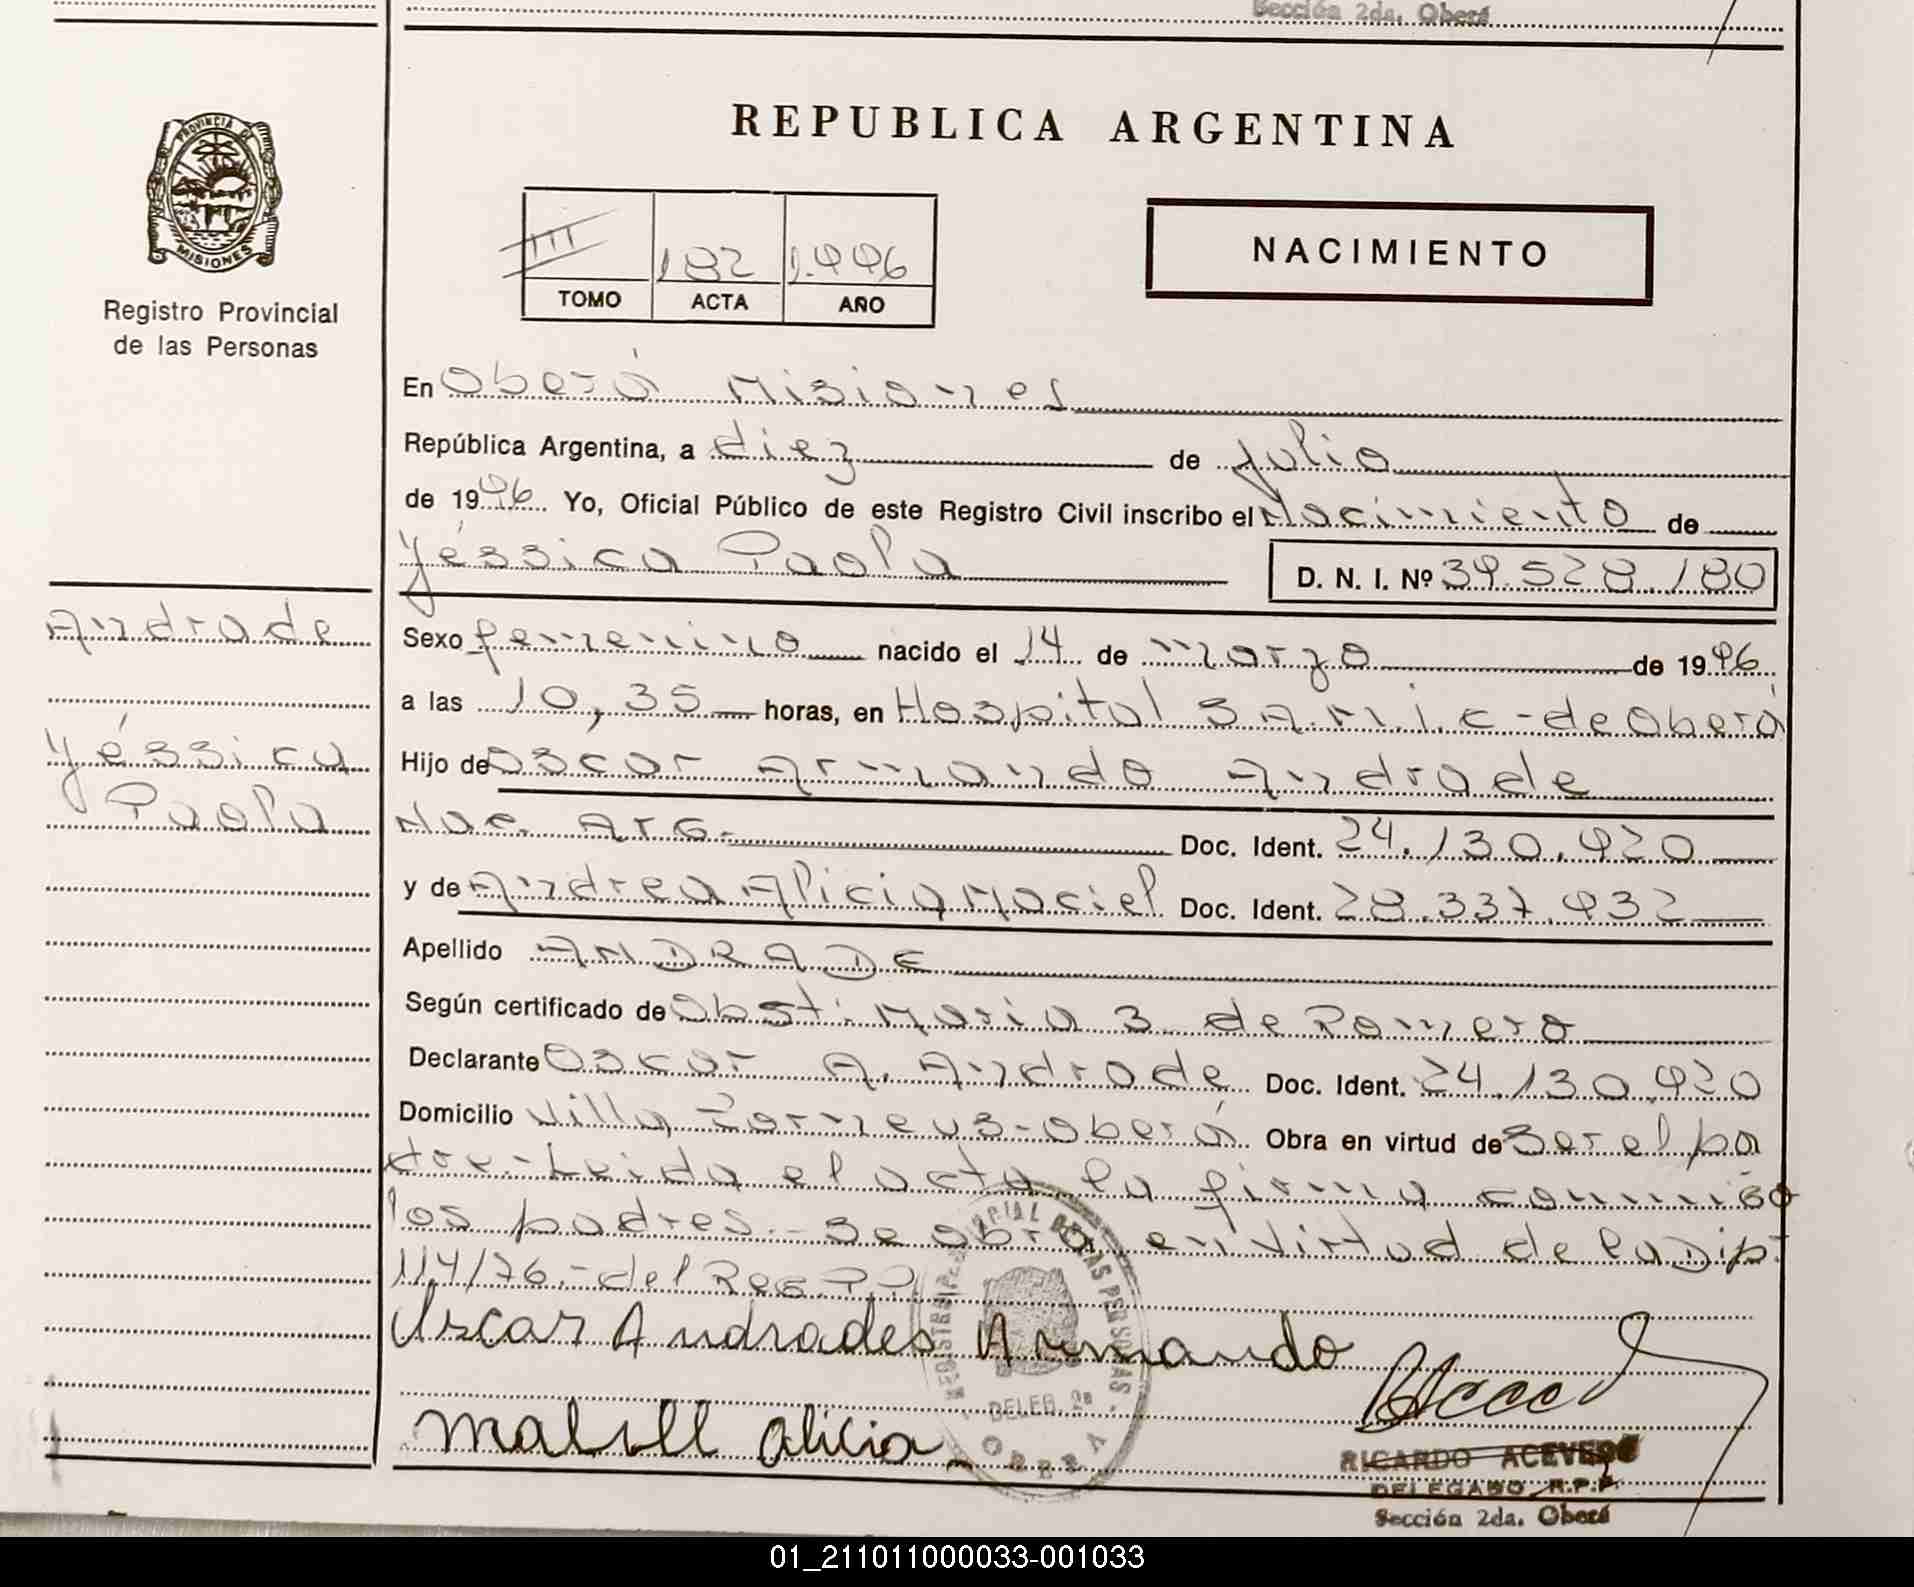 Sección 2da. Oberá
REPUBLICA ARGENTINA
PROVINCIA DE
MISIONES
Registro Provincial
de las Personas
III 182 1.996
TOMO ACTA AÑO
NACIMIENTO
En Oberá Misiones
República Argentina, a diez de julio
de 1996. Yo, Oficial Público de este Registro Civil inscribo el Nacimiento de
Yéssica Paola D. N. I. Nº 39.528.180
Andrade
Sexo femenino nacido el 14 de marzo de 1996
a las 10,35 horas, en Hospital S.A.M.I.C - de Oberá
Yéssica
Paola
Hijo de Oscar Armando Andrade
Nac. Arg. Doc. Ident. 24.130.920
y de Andrea Alicia Maciel Doc. Ident. 28.337.932
Apellido ANDRADE
Según certificado de Obst. Maria S de Romero
Declarante Oscar A. Andrade Doc. Ident. 24.130.920
Domicilio Villa - Oberá Obra en virtud de Ser el pa
dre - Leida el acta la firma conmigo
los padres - Se obra en virtud de la Disp.
114/76.- del Reg. P.P.
Oscar Andrades Armando
alicia
DELEG. 2a
OBERA
RICARDO ACEVEDO
DELEGADO R.P.P.
Sección 2da. Oberá
01_211011000033-001033